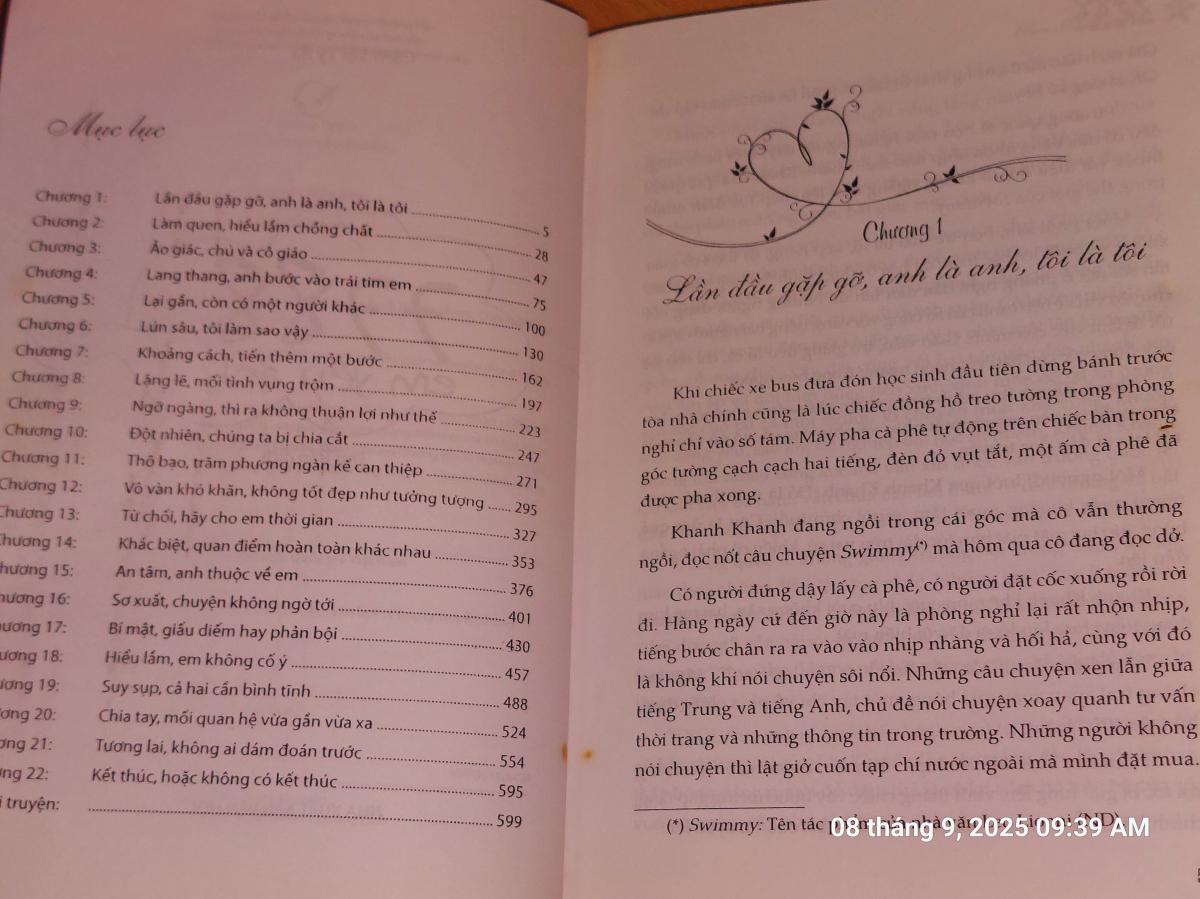 Mục lục
Chương 1: Lần đầu gặp gỡ, anh là anh, tôi là tôi 5
Chương 2: Làm quen, hiểu lầm chồng chất 28
Chương 3: Ảo giác, chú và cô giáo 47
Chương 4: Lang thang, anh bước vào trái tim em 75
Chương 5: Lại gần, còn có một người khác 100
Chương 6: Lún sâu, tôi làm sao vậy 130
Chương 7: Khoảng cách, tiến thêm một bước 162
Chương 8: Lặng lẽ, mối tình vụng trộm 197
Chương 9: Ngỡ ngàng, thì ra không thuận lợi như thế 223
Chương 10: Đột nhiên, chúng ta bị chia cắt 247
Chương 11: Thô bạo, trăm phương ngàn kế can thiệp 271
Chương 12: Vô vàn khó khăn, không tốt đẹp như tưởng tượng 295
Chương 13: Từ chối, hãy cho em thời gian 327
Chương 14: Khác biệt, quan điểm hoàn toàn khác nhau 353
hương 15: An tâm, anh thuộc về em 376
hương 16: Sơ xuất, chuyện không ngờ tới 401
ương 17: Bí mật, giấu diếm hay phản bội 430
ương 18: Hiểu lầm, em không cố ý 457
ương 19: Suy sụp, cả hai cần bình tĩnh 488
ơng 20: Chia tay, mối quan hệ vừa gần vừa xa 524
ơng 21: Tương lai, không ai dám đoán trước 554
ng 22: Kết thúc, hoặc không có kết thúc 595
i truyện: 599
Chương 1
Lần đầu gặp gỡ, anh là anh, tôi là tôi
Khi chiếc xe bus đưa đón học sinh đầu tiên dừng bánh trước
tòa nhà chính cũng là lúc chiếc đồng hồ treo tường trong phòng
nghỉ chỉ vào số tám. Máy pha cà phê tự động trên chiếc bàn trong
góc tường cạch cạch hai tiếng, đèn đỏ vụt tắt, một ấm cà phê đã
được pha xong.
Khanh Khanh đang ngồi trong cái góc mà cô vẫn thường
ngồi, đọc nốt câu chuyện Swimmy(*) mà hôm qua cô đang đọc dở.
Có người đứng dậy lấy cà phê, có người đặt cốc xuống rồi rời
đi. Hàng ngày cứ đến giờ này là phòng nghỉ lại rất nhộn nhịp,
tiếng bước chân ra ra vào vào nhịp nhàng và hối hả, cùng với đó
là không khí nói chuyện sôi nổi. Những câu chuyện xen lẫn giữa
tiếng Trung và tiếng Anh, chủ đề nói chuyện xoay quanh tư vấn
thời trang và những thông tin trong trường. Những người không
nói chuyện thì lật giở cuốn tạp chí nước ngoài mà mình đặt mua.
(*) Swimmy: Tên tác (ND).
08 tháng 9, 2025 09:39 AM